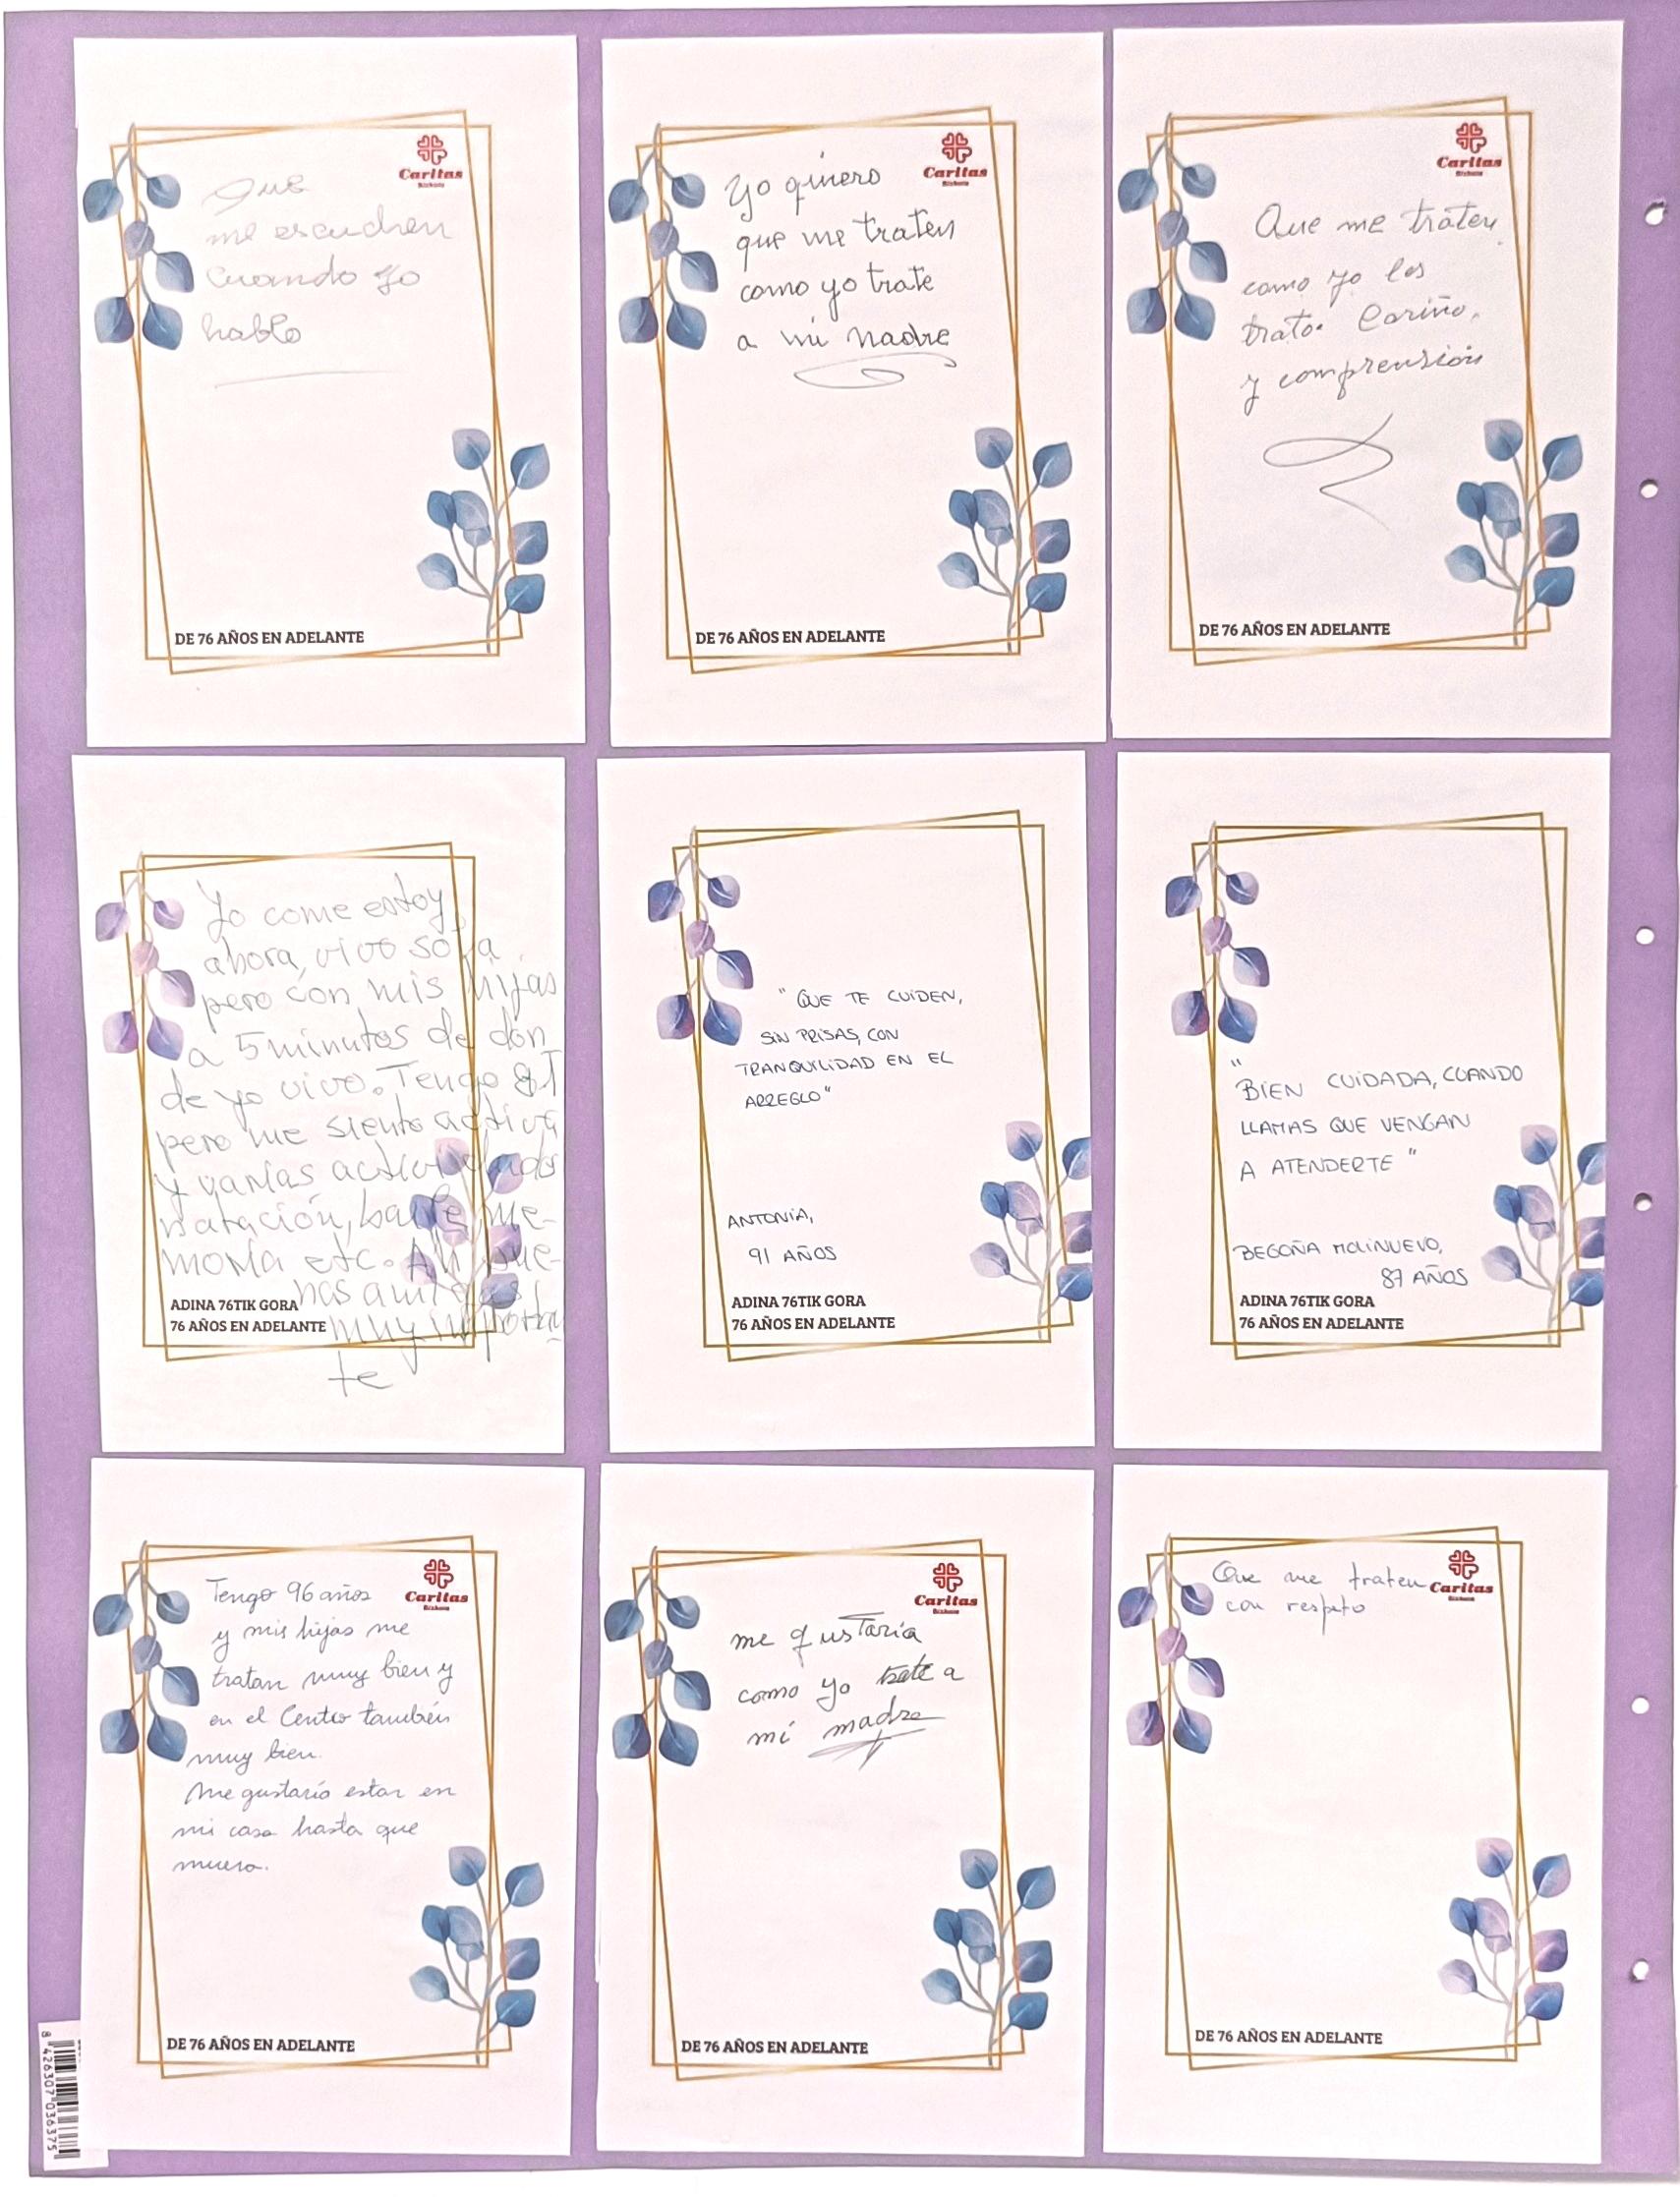 Caritas
Bizkaia
Que
me escuchen
cuando yo
hablo
DE 76 AÑOS EN ADELANTE
Caritas
Bizkaia
Yo quiero
que me traten
como yo trate
a mi madre
DE 76 AÑOS EN ADELANTE
Caritas
Bizkaia
Que me traten
como yo los
trato. Cariño,
y comprensión
DE 76 AÑOS EN ADELANTE
Yo come estoy
ahora, vivo sola
pero con mis hijas
a 5 minutos de don
de yo vivo. Tengo 81
pero me siento activa
y varias actividades
natación, baile, me-
moria etc. Ah bue-
nas amigas
muy importan
te
ADINA 76TIK GORA
76 AÑOS EN ADELANTE
"QUE TE CUIDEN,
SIN PRISAS, CON
TRANQUILIDAD EN EL
ARREGLO"
ANTONIA,
91 AÑOS
ADINA 76TIK GORA
76 AÑOS EN ADELANTE
"
BIEN CUIDADA, CUANDO
LLAMAS QUE VENGAN
A ATENDERTE "
BEGOÑA MOLINUEVO,
87 AÑOS
ADINA 76TIK GORA
76 AÑOS EN ADELANTE
Caritas
Bizkaia
Tengo 96 años
y mis hijas me
tratan muy bien y
en el Centro también
muy bien.
Me gustaría estar en
mi casa hasta que
muera.
DE 76 AÑOS EN ADELANTE
Caritas
Bizkaia
me gustaría
como yo trate a
mi madre
DE 76 AÑOS EN ADELANTE
Caritas
Bizkaia
Que me traten
con respeto
DE 76 AÑOS EN ADELANTE
8 426307 036375